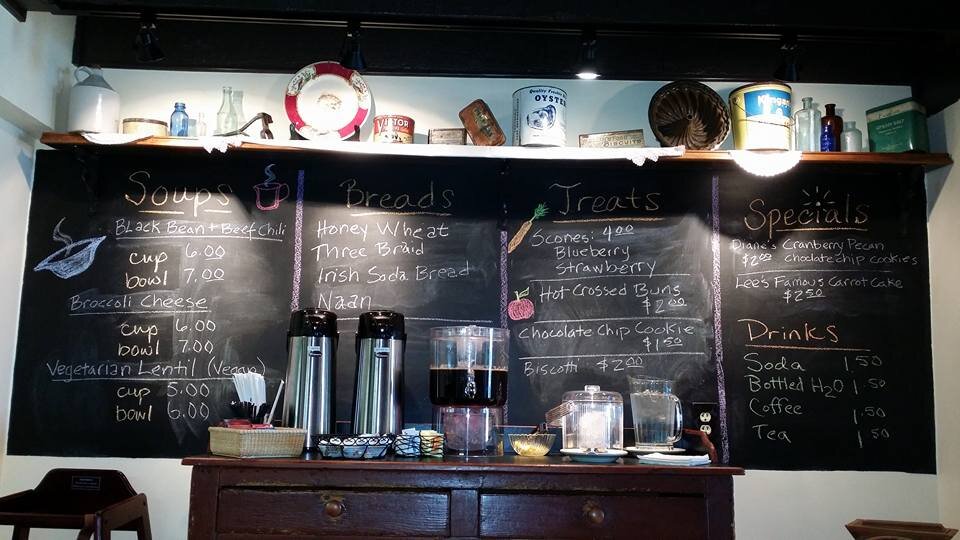 Quality Freshly
OYSTER
VICTOR
BISCUITS
Soups
Black Bean + Beef Chili
cup 6.00
bowl 7.00
Broccoli Cheese
cup 6.00
bowl 7.00
Vegetarian Lentil (Vegan)
cup 5.00
bowl 6.00
Breads
Honey Wheat
Three Braid
Irish Soda Bread
Naan
Treats
Scones: 4.00
Blueberry
Strawberry
Hot Crossed Buns
$2.00
Chocolate Chip Cookie
$1.50
Biscotti $2.00
Specials
Diane's Cranberry Pecan
$2.00 chocolate chip cookies
Lee's Famous Carrot Cake
$2.50
Drinks
Soda 1.50
Bottled H2O 1.50
Coffee 1.50
Tea 1.50